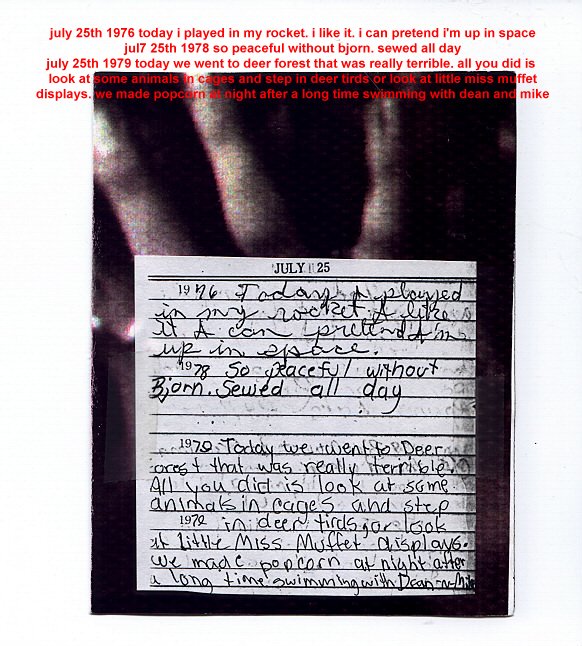 july 25th 1976 today i played in my rocket. i like it. i can pretend i'm up in space
jul7 25th 1978 so peaceful without bjorn. sewed all day
july 25th 1979 today we went to deer forest that was really terrible. all you did is
look at some animals in cages and step in deer tirds or look at little miss muffet
displays. we made popcorn at night after a long time swimming with dean and mike
JULY 25
1976 Today I played
in my rocket. I like
it I can pretend I'm
up in space.
1978 So peaceful without
Bjorn. Sewed all day
1979 Today we went to Deer
orest that was really terrible.
All you did is look at some
animals in cages and step
197 in deer tirds, or look
at Little Miss Muffet displays.
we made popcorn at night after
a long time swimming with Dean-n-Mike